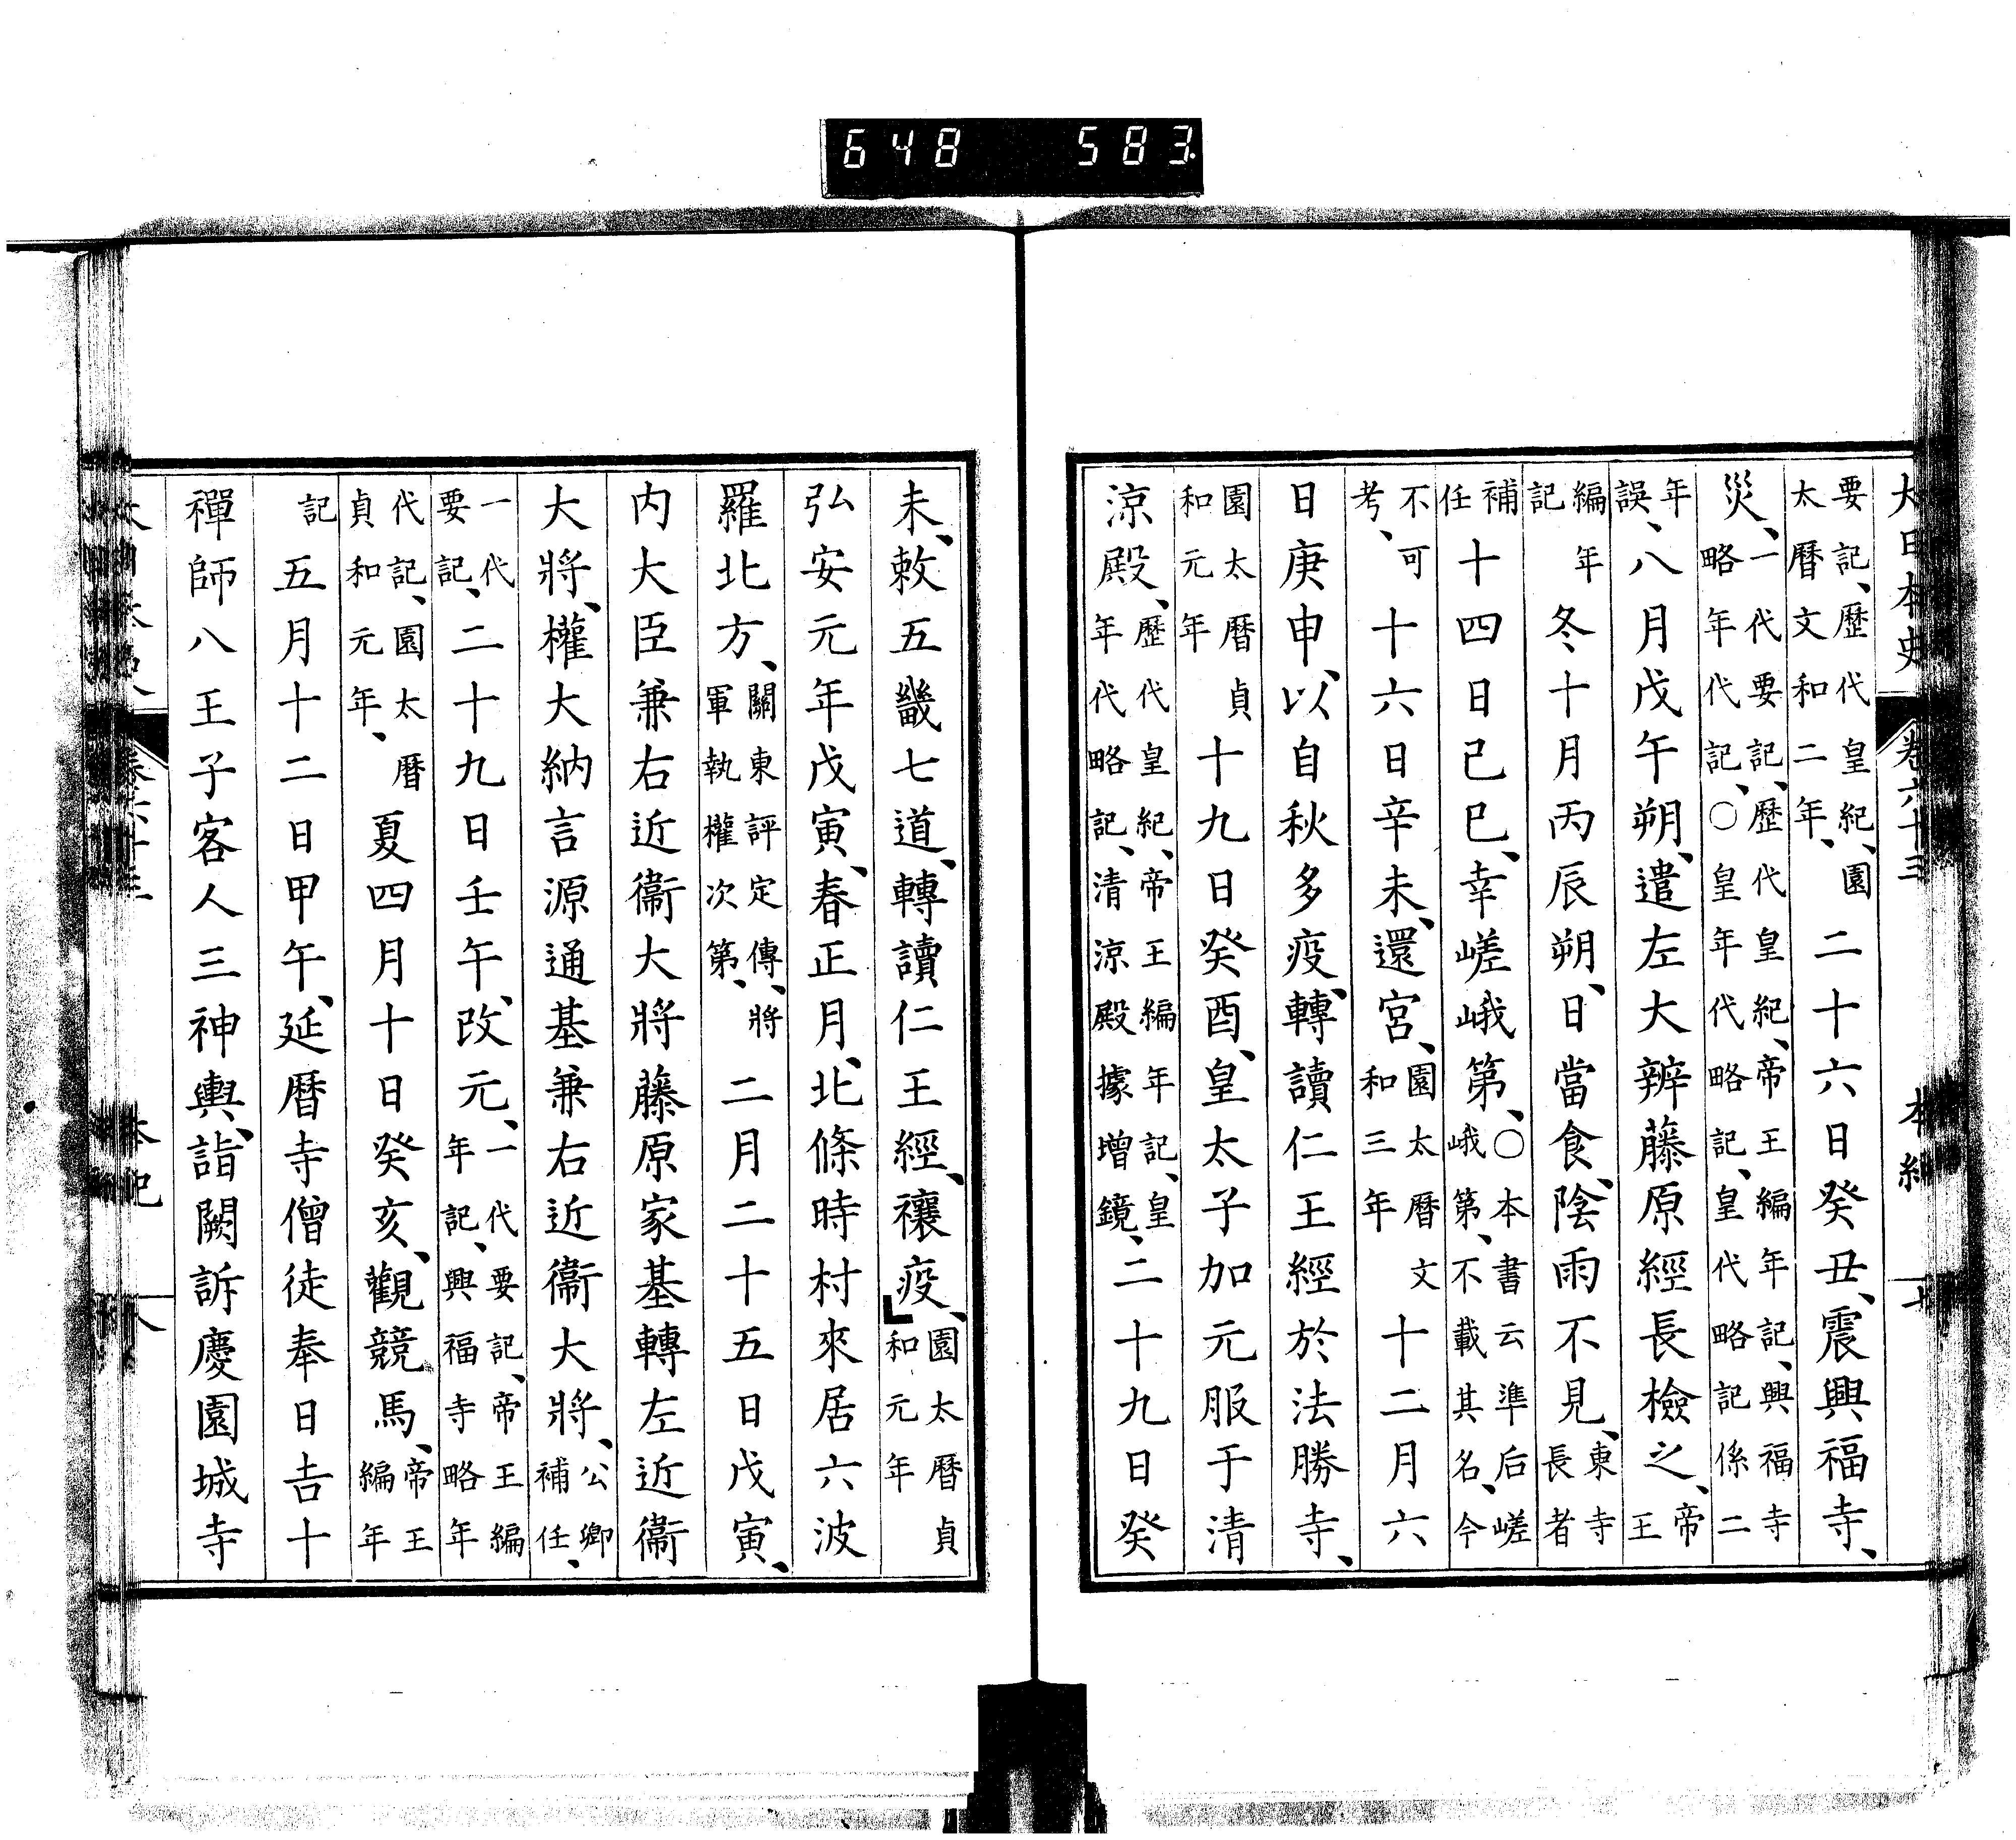 大日本史 卷六十三 本紀 七
要記、歷代皇紀、園太曆文和二年、二十六日癸丑、震興福寺、
災、一代要記、歷代皇紀、帝王編年記、興福寺略年代記、〇皇年代略記、皇代略記係二
年誤、八月戊午朔、遣左大辨藤原經長檢之、帝王
編年記冬十月丙辰朔、日當食、陰雨不見、東寺長者
補任十四日己巳、幸嵯峨第、〇本書云準后嵯峨第、不載其名、今
不可考、十六日辛未、還宮、園太曆文和三年十二月六
日庚申、以自秋多疫、轉讀仁王經於法勝寺、
園太曆貞和元年十九日癸酉、皇太子加元服于清
涼殿、歷代皇紀、帝王編年記、皇年代略記、清涼殿據增鏡、二十九日癸
未、敕五畿七道、轉讀仁王經、禳疫、園太曆貞和元年
弘安元年戊寅、春正月、北條時村來居六波
羅北方、關東評定傳、將軍執權次第、二月二十五日戊寅、
内大臣兼右近衞大將藤原家基轉左近衞
大將、權大納言源通基兼右近衞大將、公卿補任、
一代要記、二十九日壬午、改元、一代要記、帝王編年記、興福寺略年
代記、園太曆貞和元年、夏四月十日癸亥、觀競馬、帝王編年
記五月十二日甲午、延曆寺僧徒奉日吉十
禪師八王子客人三神輿、詣闕訴慶園城寺
648 583